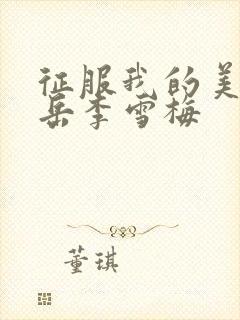 征服我的美
岳李雪梅
董琪